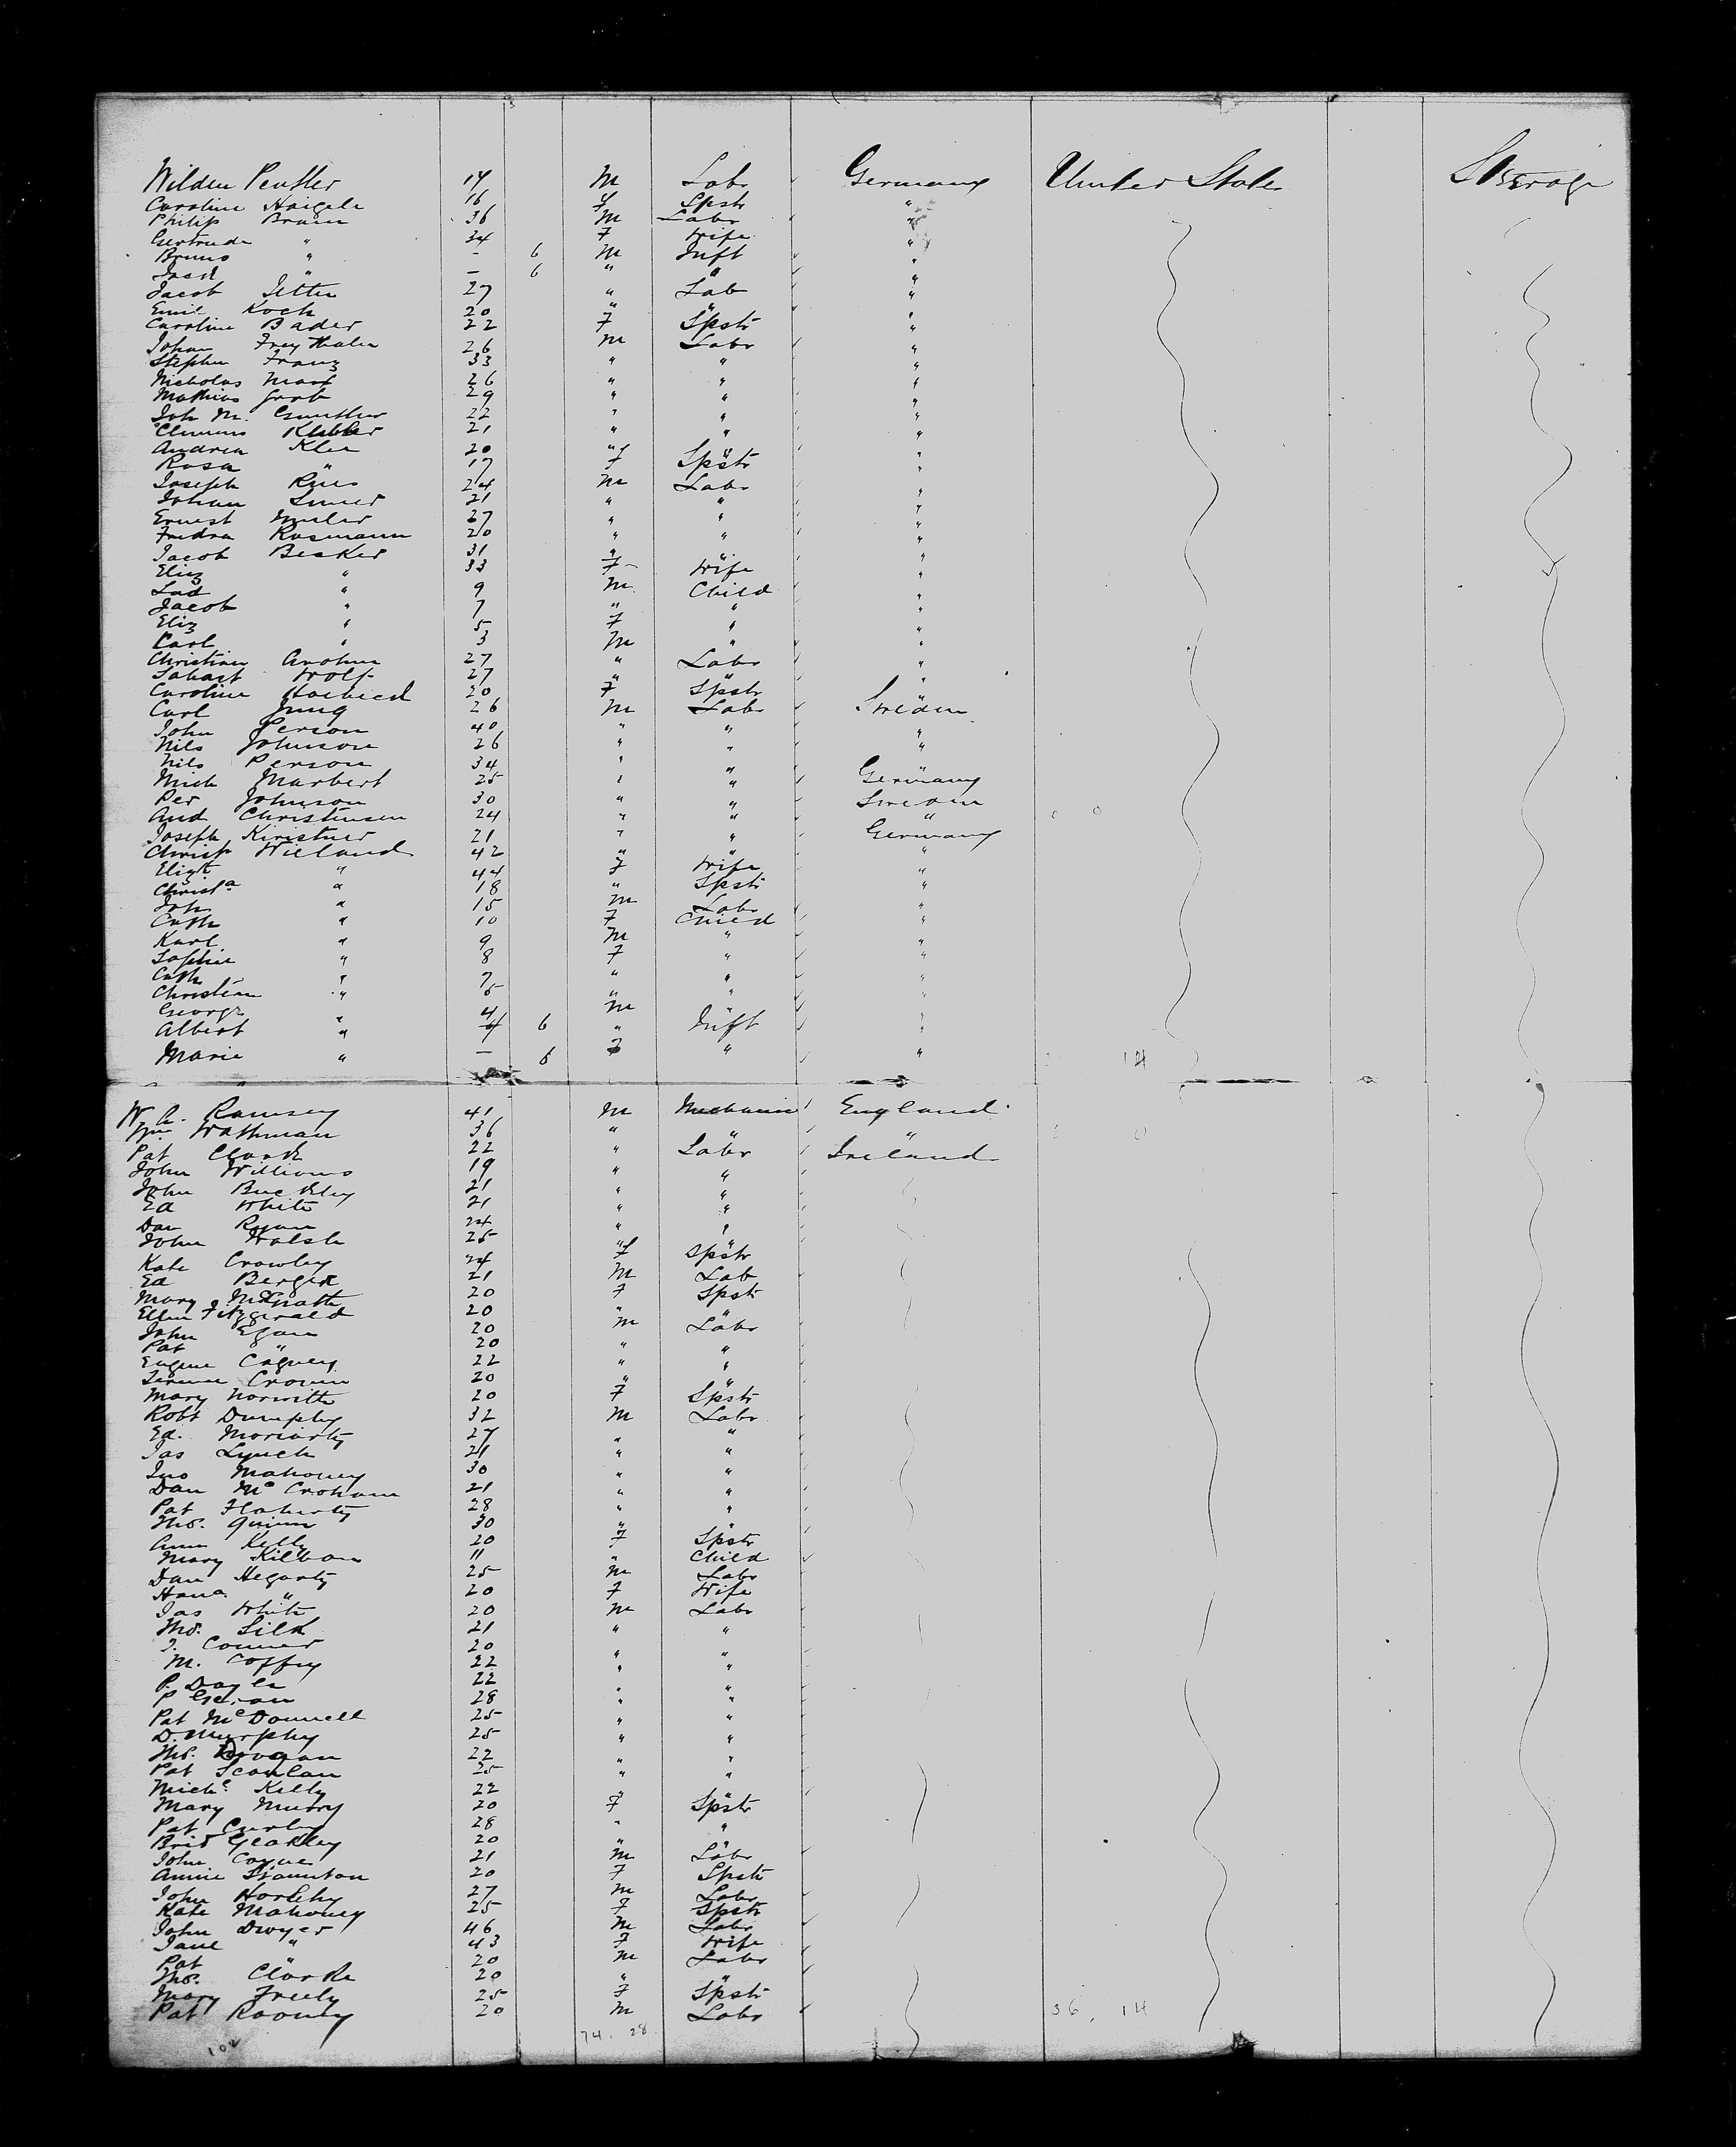 Wilden Peutler 17 M Labr Germany United States Steerage
Caroline Haigele 16 F Spstr "
Philip Braun 36 M Labr "
Gertrude " 34 F Wife "
Bruno " - 6 M Inft "
" - 6 " " "
Jacob Jetter 27 " Lab "
Emil Koch 20 " " "
Caroline Bader 22 F Spstr "
Johan Freythaler 26 M Labr "
Stephen Franz 33 " " "
Nicholas Marx 26 " " "
Mathias Grab 29 " " "
Joh M. Gunther 22 " " "
Clemens 21 " " "
Andrea Klee 20 " " "
Rosa " 17 F Spstr "
Joseph 24 M Labr "
Johan 21 " " "
Ernest 27 " " "
Fredra Rosmann 20 " " "
Jacob Becker 31 " " "
Eliz " 33 F Wife "
Lud " 9 M Child "
Jacob " 7 " " "
Eliz " 5 F " "
Carl " 3 M " "
Christian 27 " Labr "
Wolf 27 " " "
Caroline 20 F Spstr "
Carl Jung 26 M Labr Sweden
John Person 40 " " "
Nils Johnson 26 " " "
Nils Person 34 " " "
Mich Marbert 25 " " Germany
Per Johnson 30 " " Sweden
And Christensen 24 " " "
Joseph Kiristner 21 " " Germany
Christ Wieland 42 " " "
Elizt " 44 F Wife "
Christa " 18 " Spstr "
Joh " 15 M Labr "
Cath " 10 F Child "
Karl " 9 M " "
Sophie " 8 F " "
Cath " 7 " " "
Christian " 5 " " "
George " 4 M " "
Albert " 6 " Inft "
Marie " - 6 F " " 14
W. A. Ramsey 41 M Mechanic England
Wm Wathman 36 " "
Pat Clark 22 " Labr Ireland
John Williams 19 " "
John Buckley 21 " "
Ed White 21 " "
Dan Ryan 24 " "
John Walsh 25 " "
Kate Crowley 24 F Spstr
Ed Berger 21 M Lab
Mary McGrath 20 F Spstr
Ellen Fitzgerald 20 " "
John Egan 20 M Labr
Pat " 20 " "
Eugene Cagney 22 " "
Cronin 20 " "
Mary Norwitte 20 F Spstr
Robt Dumphy 32 M Labr
Ed. Moriarty 27 " "
Jas Lynch 21 " "
Jno Mahoney 30 " "
Dan Mc Crohan 21 " "
Pat Flaherty 28 " "
Tho. Quinn 30 " "
Ann Kelly 20 F Spstr
Mary Kilbon 11 " Child
Dan Hegarty 25 M Labr
Hana " 20 F Wife
Jas White 20 M Labr
Mo. Silk 21 " "
J. Connor 20 " "
M. Coffey 22 " "
P. Doyle 22 " "
P 28 " "
Pat McDonnell 25 " "
D. Murphy 25 " "
Tho. Brogan 22 " "
Pat Scanlan 25 " "
Michl Kelly 22 " "
Mary Murry 20 F Spstr
Pat Curley 28 " "
Brid Geakley 20 " "
John Coyne 21 M Labr
Annie Staunton 20 F Spstr
John Horlehy 27 M Labr
Kate Mahoney 25 F Spstr
John Dwyer 46 M Labr
Jane " 43 F Wife
Pat " 20 M Labr
Tho. Clarke 20 " "
Mary Freely 25 F Spstr
Pat Rooney 20 M Labr 36, 14
102 74. 28